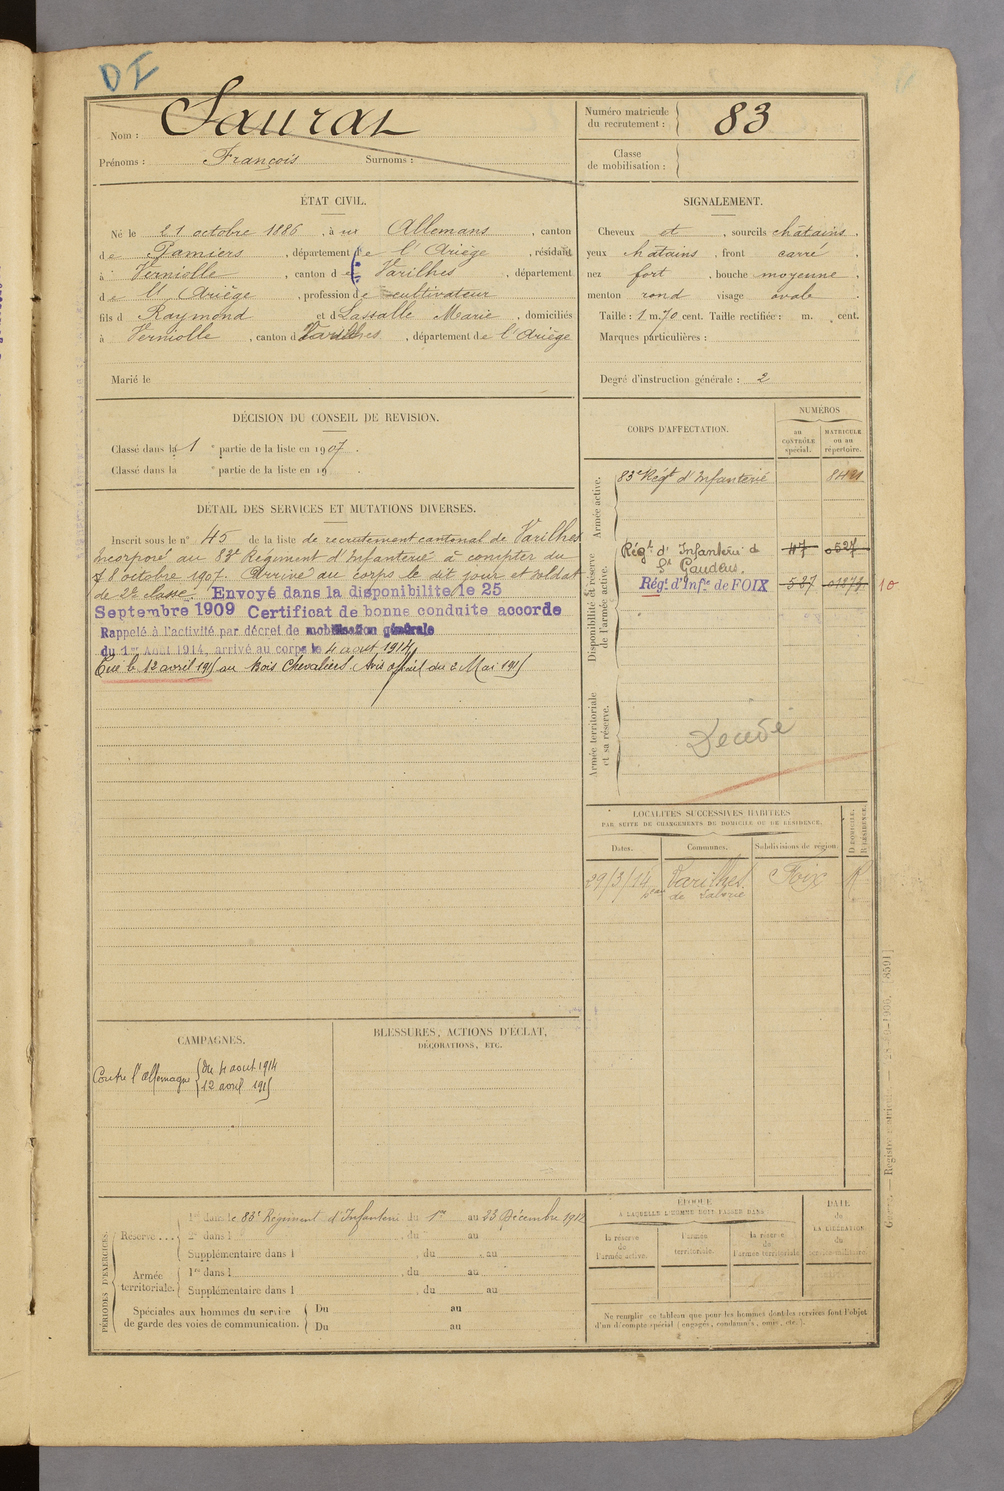 DI
Nom : Saurat
Prénoms : François Surnoms :
Numéro matricule du recrutement : 83
Classe de mobilisation :
ÉTAT CIVIL.
Né le 21 octobre 1886, à Allemans, canton
de Pamiers, département de l'Ariège, résidant
à Verniolle, canton de Varilhes, département
de l'Ariège, profession de cultivateur
fils de Raymond et de Lassalle Marie, domiciliés
à Verniolle, canton de Varilhes, département de l'Ariège
Marié le
SIGNALEMENT.
Cheveux et, sourcils châtains,
yeux châtains, front carré,
nez fort, bouche moyenne,
menton rond visage ovale.
Taille : 1 m. 70 cent. Taille rectifiée : m. cent.
Marques particulières :
Degré d'instruction générale : 2
DÉCISION DU CONSEIL DE REVISION.
Classé dans la 1e partie de la liste en 1907.
Classé dans la e partie de la liste en 19 .
DÉTAIL DES SERVICES ET MUTATIONS DIVERSES.
Inscrit sous le n° 45 de la liste de recrutement cantonal de Varilhes
Incorporé au 83e Régiment d'Infanterie à compter du
8 octobre 1907. Arrivé au corps le dit jour et soldat
de 2e classe. Envoyé dans la disponibilité le 25
Septembre 1909 Certificat de bonne conduite accordé
Rappelé à l'activité par décret de mobilisation générale
du 1er Août 1914, arrivé au corps le 4 août 1914
Tué le 12 avril 1915 au bois Chevaliers. Avis officiel du 2 Mai 1915
CORPS D'AFFECTATION.
NUMÉROS
au CONTRÔLE spécial.
MATRICULE ou au répertoire.
Armée active.
83e Régt d'Infanterie
Disponibilité et réserve de l'armée active.
Régt d'Infanterie de St Gaudens. 47 0527
Régt. d'Infie de FOIX 527
10
Armée territoriale et sa réserve.
Décédé
LOCALITÉS SUCCESSIVES HABITÉES
PAR SUITE DE CHANGEMENTS DE DOMICILE OU DE RÉSIDENCE.
Dates. Communes. Subdivisions de région. D. DOMICILE. R. RÉSIDENCE.
29/3/14 Varilhes Foix R
CAMPAGNES.
Contre l'Allemagne du 4 aout 1914
12 avril 1915
BLESSURES, ACTIONS D'ÉCLAT,
DÉCORATIONS, ETC.
PÉRIODES D'EXERCICES.
Réserve ... 1re dans le 83e Régiment d'Infanterie du 1er au 23 Décembre 1912
2e dans l , du au
Supplémentaire dans l , du au
Armée territoriale. 1re dans l , du au
Supplémentaire dans l , du au
Spéciales aux hommes du service de garde des voies de communication. Du au
Du au
ÉPOQUE
À LAQUELLE L'HOMME DOIT PASSER DANS
la réserve de l'armée active. l'armée territoriale. la réserve de l'armée territoriale.
DATE de LA LIBÉRATION du service militaire.
Ne remplir ce tableau que pour les hommes dont les services font l'objet
d'un décompte spécial (engagés, condamnés, omis, etc.).